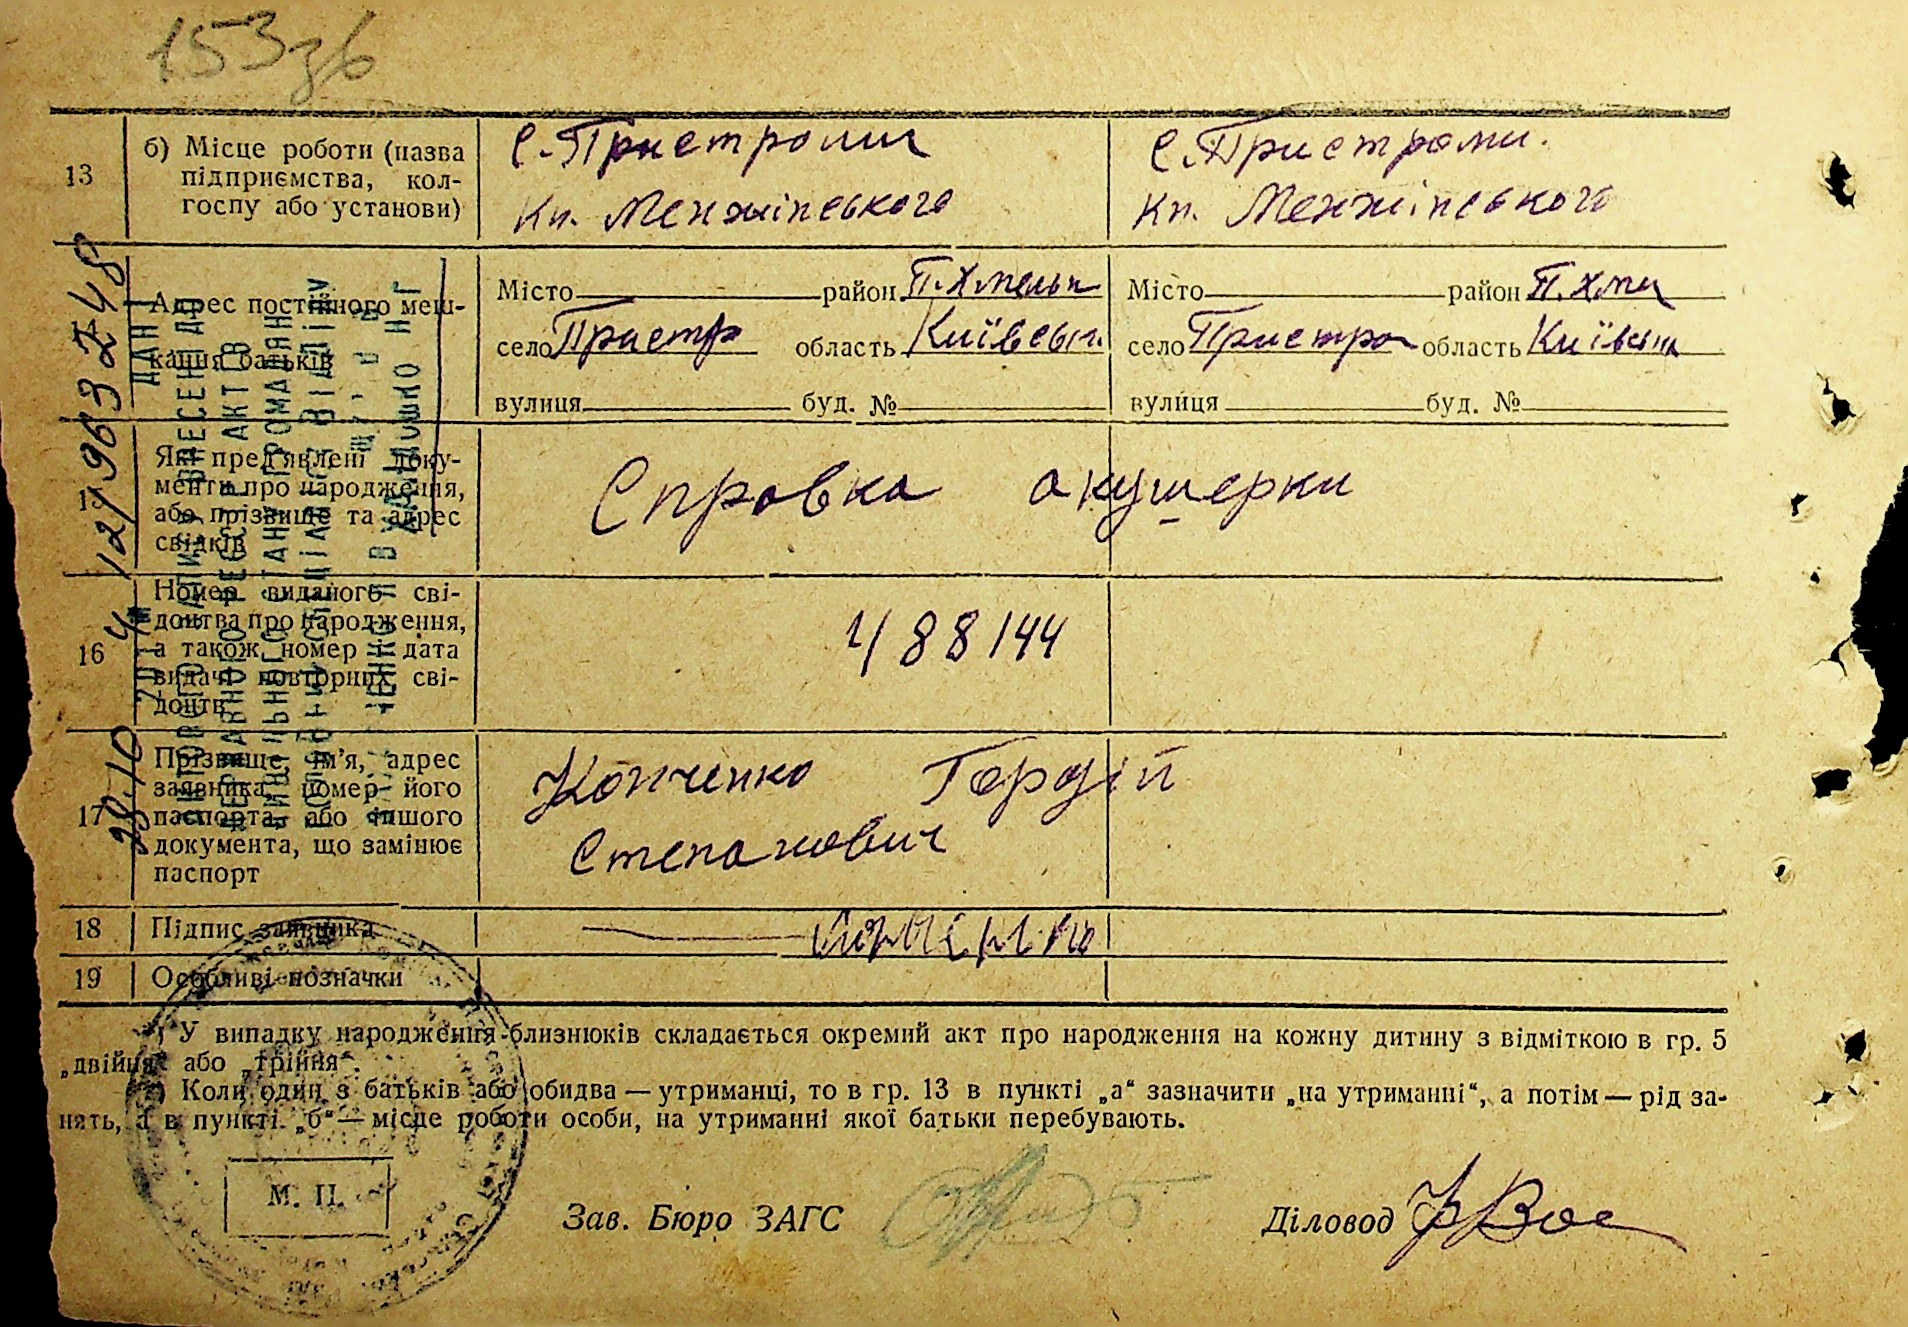 153зв
13
б) Місце роботи (назва
підприємства, кол-
госпу або установи)
с. Пристроми
Кп. Менжінського
с. Пристроми.
Кп. Менжінського
Адрес постійного меш-
кання батьків
Місто район П. Хмельн
село Пристр область Київськ.
вулиця буд. №
Місто район П. Хм
село Пристро область Київськ
вулиця буд. №
Які пред'явлені доку-
менти про народження,
або прізвище та адрес
свідків
Справка акушерки
16
Номер виданого сві-
доцтва про народження,
а також номер і дата
видачі повторних сві-
доцтв
488144
17
Прізвище, ім'я, адрес
заявника, номер його
паспорта, або іншого
документа, що замінює
паспорт
Гордій
Степанович
18 Підпис заявника
19 Особливі позначки
У випадку народження близнюків складається окремий акт про народження на кожну дитину з відміткою в гр. 5
„двійня“ або „трійня“.
Коли один з батьків або обидва — утриманці, то в гр. 13 в пункті „а“ зазначити „на утриманні“, а потім — рід за-
нять, а в пункті „б“ — місце роботи особи, на утриманні якої батьки перебувають.
М. П.
Зав. Бюро ЗАГС
Діловод